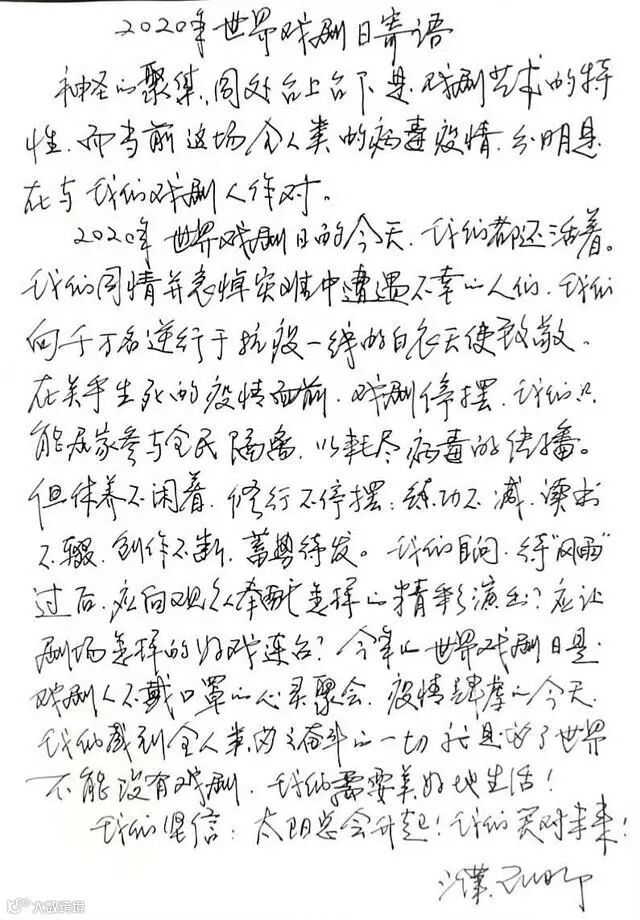 2020年世界戏剧日寄语
神圣的聚集、同处台上台下是戏剧艺术的特
性.而当前这场全人类的病毒疫情.分明是
在与我们戏剧人作对。
2020年世界戏剧日的今天.我们都还活着。
我们同情并哀悼灾难中遭遇不幸的人们.我们
向千万名逆行于抗疫一线的白衣天使致敬.
在关乎生死的疫情面前.戏剧停摆.我们只
能居家参与全民隔离.以耗尽病毒的传播。
但休养不闲着.修行不停摆:练功不减.读书
不辍.创作不断.蓄势待发。我们自问.待"风雨"
过后.应向观众奉献怎样的精彩演出?应让
剧场怎样的好戏连台?今年的世界戏剧日是
戏剧人不戴口罩的心灵聚会.疫情肆虐的今天.
我们感到全人类为之奋斗的一切就是为了世界
不能没有戏剧.我们需要美好地生活!
我们坚信:太阳总会升起!我们笑对未来!
濮存昕
大数跨境